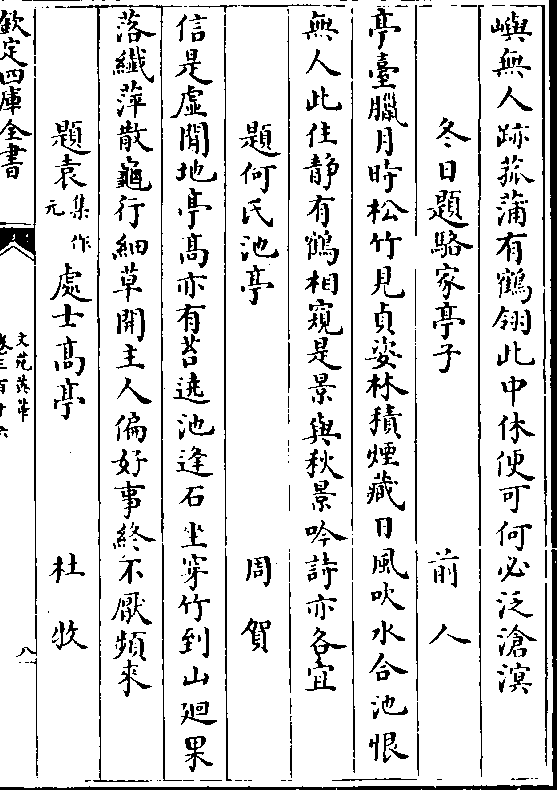 嶼無人跡菰蒲有鶴翎此中休便可何必泛滄溟
冬日題駱家亭子　前人
亭臺臘月時松竹見貞姿林積煙藏日風吹水合池恨
無人此住静有鶴相窺是景與秋景吟詩亦各宜
題何氏池亭　周賀
信是虚閒地亭髙亦有苔遶池逢石坐穿竹到山廻果
落纎萍散龜行細草開主人偏好事終不厭頻來
題袁集作元處士髙亭　杜牧
欽定四庫全書
文苑英華
卷三百十六
八